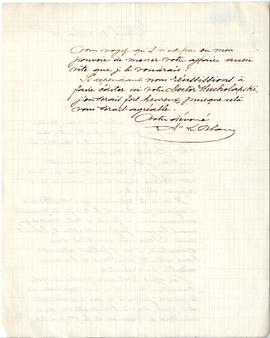 Vous voyez qu'il n'est pas en mon
pouvoir de mener votre affaire aussi
vite que je le voudrais.
Si cependant nous réussissions à
faire éditer ici votre Doctor
j'en serais fort heureux, puisque cela
vous serait agréable.
Votre dévoué